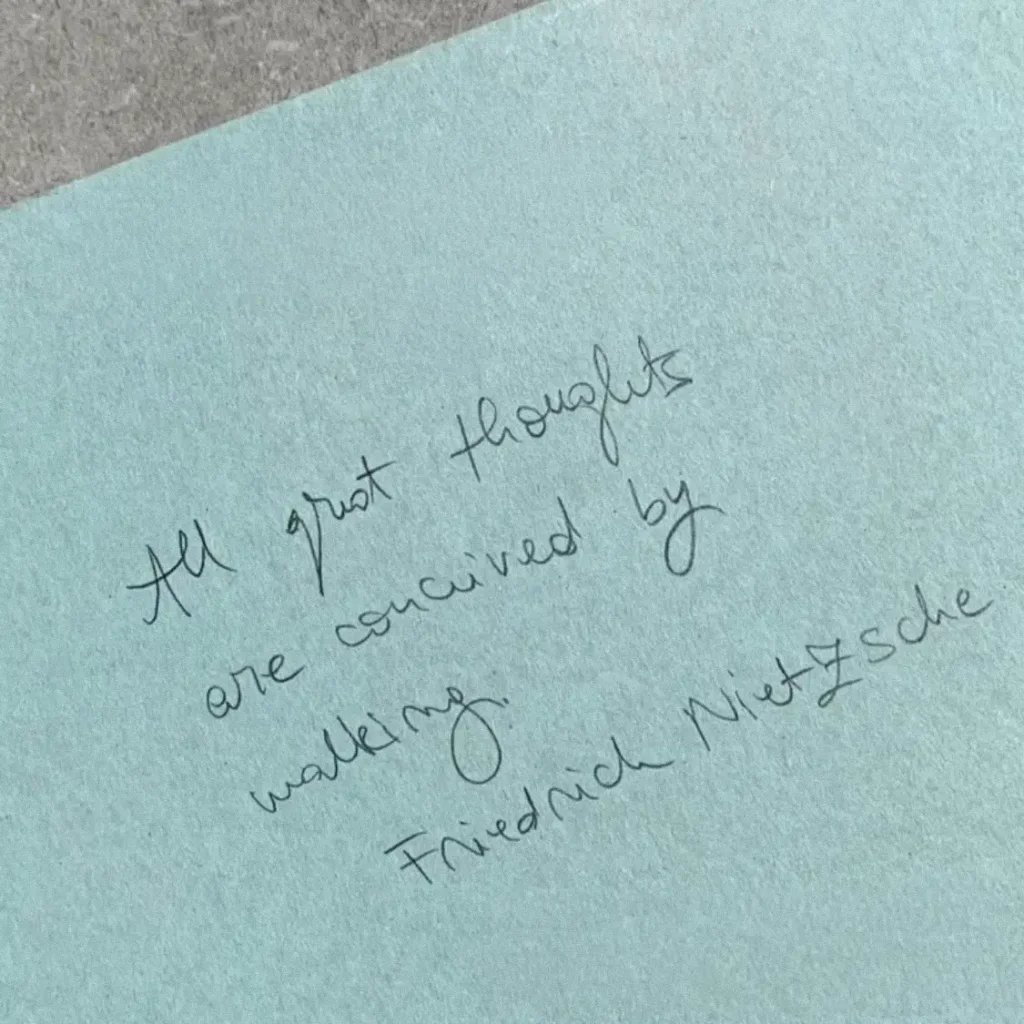 All great thoughts
are conceived by
walking.
Friedrich Nietzsche